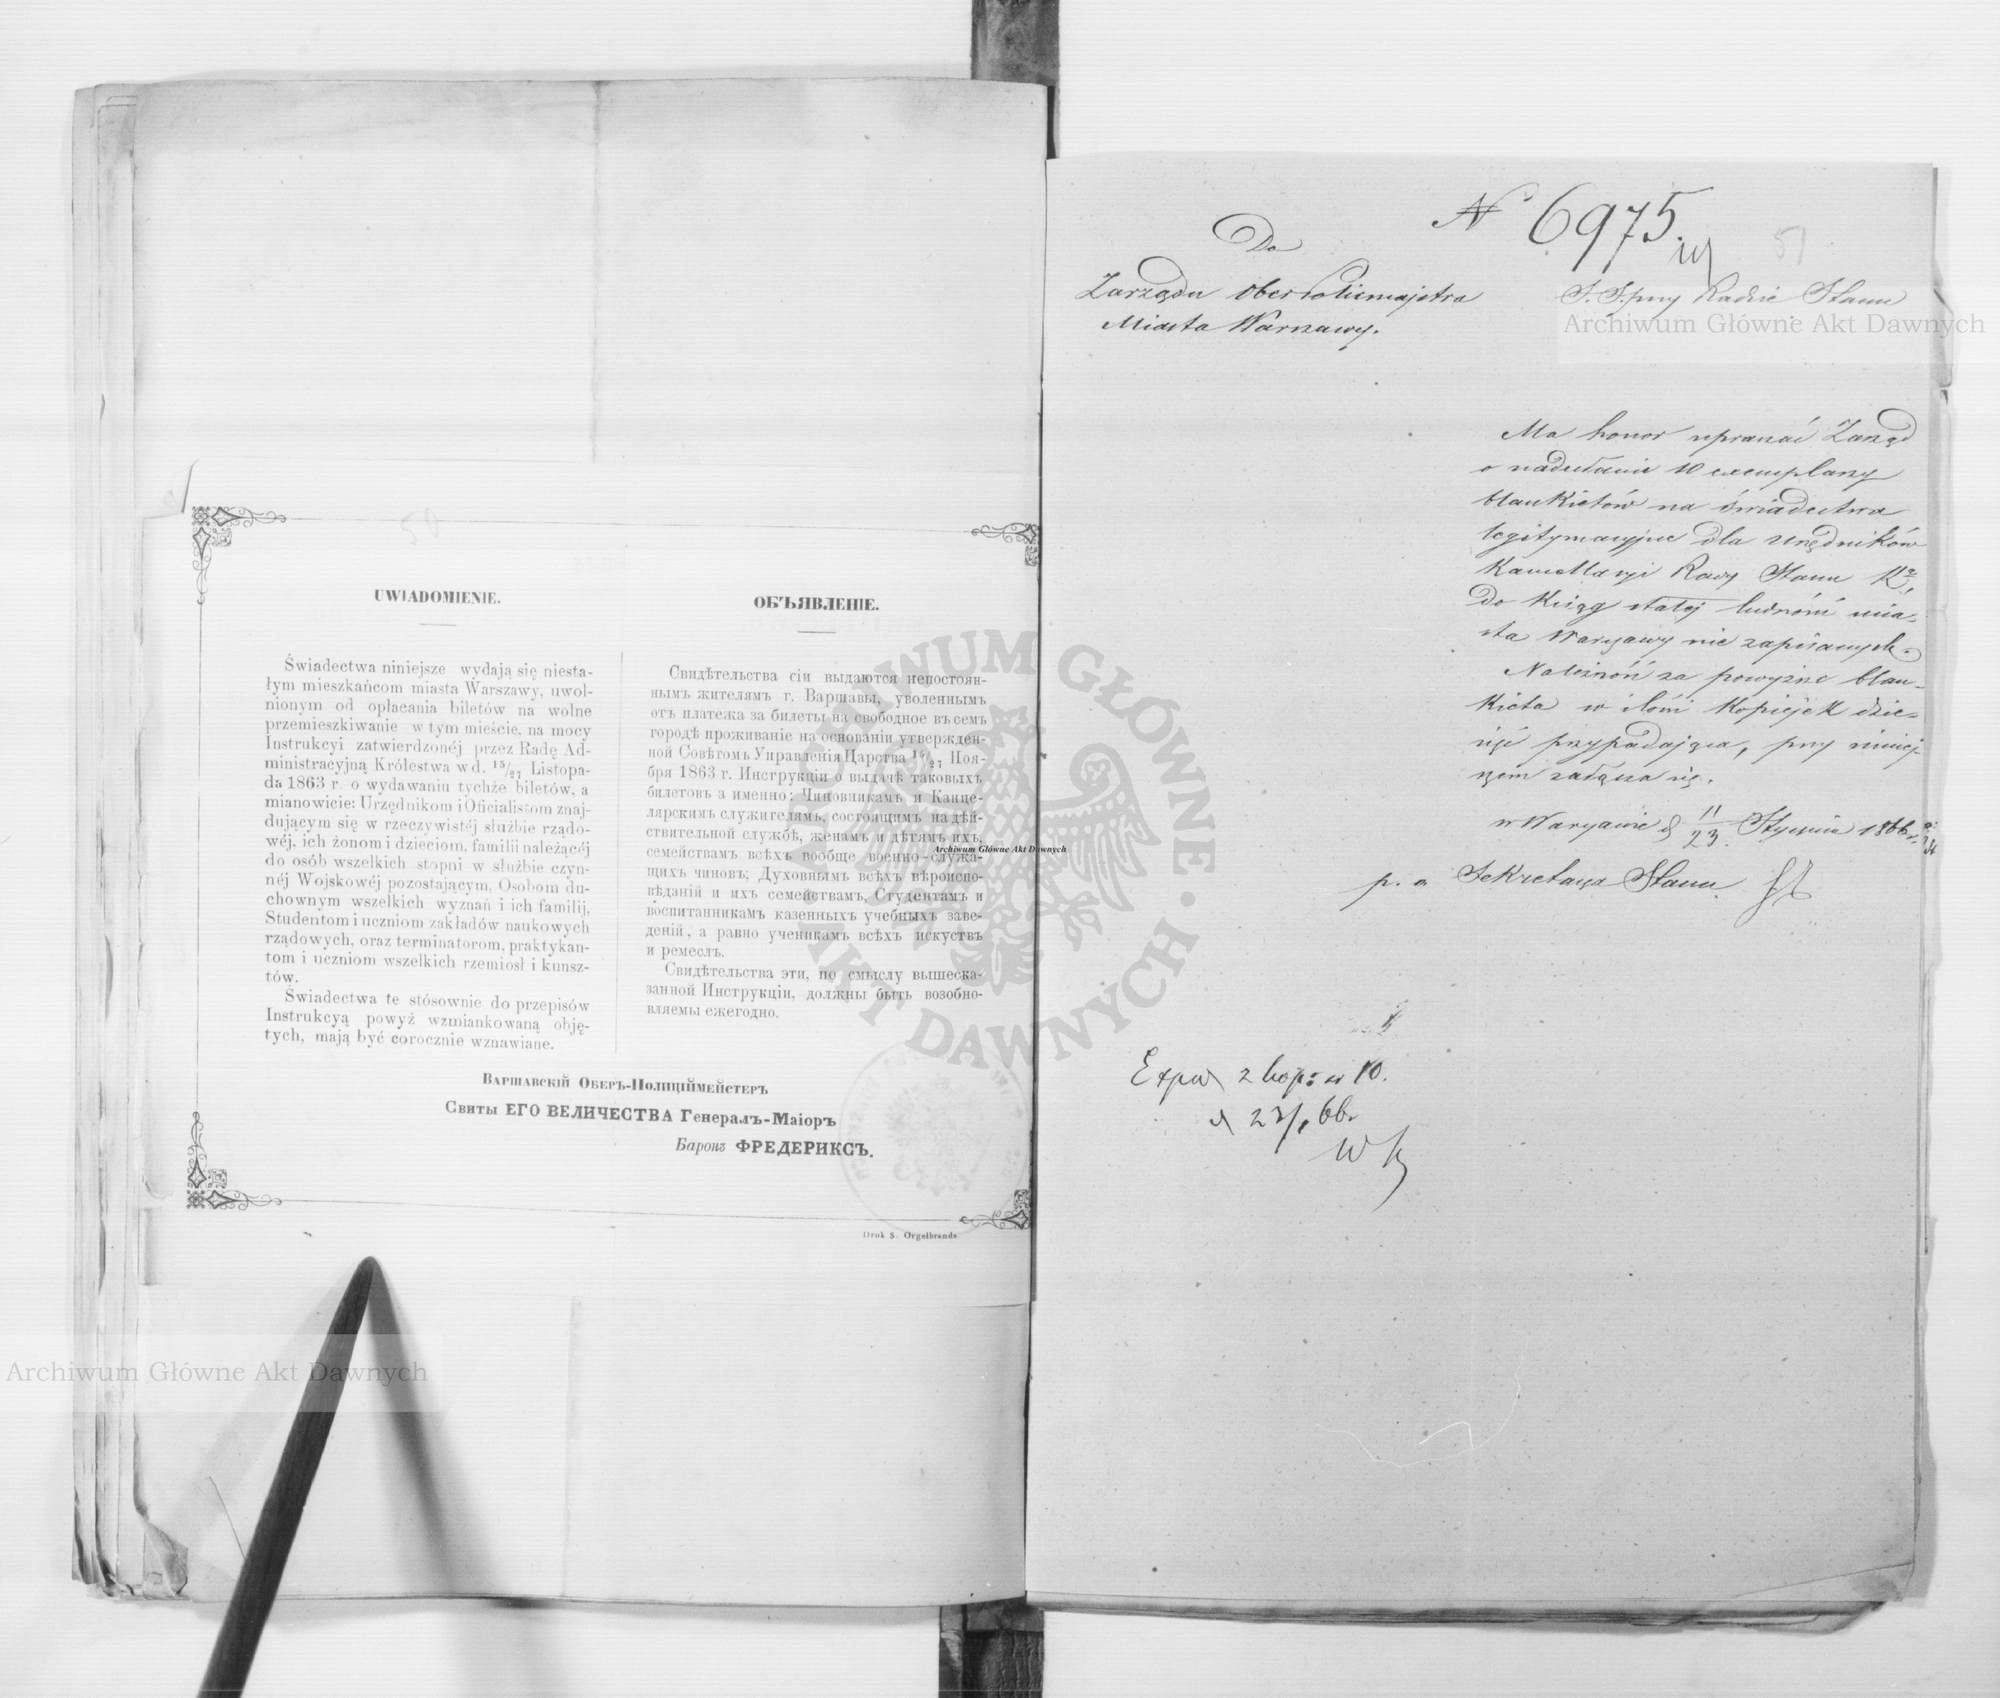 50
UWIADOMIENIE.
Świadectwa niniejsze wydają się niesta-
łym mieszkańcom miasta Warszawy, uwol-
nionym od opłacania biletów na wolne
przemieszkiwanie w tym mieście, na mocy
Instrukcyi zatwierdzonéj przez Radę Ad-
ministracyjną Królestwa w d. 15/27 Listopa-
da 1863 r. o wydawaniu tychże biletów, a
mianowicie: Urzędnikom i Oficialistom znaj-
dującym się w rzeczywistéj służbie rządo-
wéj, ich żonom i dzieciom, familii należącéj
do osób wszelkich stopni w służbie czyn-
néj Wojskowéj pozostającym, Osobom du-
chownym wszelkich wyznań i ich familij,
Studentom i uczniom zakładów naukowych
rządowych, oraz terminatorom, praktykan-
tom i uczniom wszelkich rzemiosł i kunsz-
tów.
Świadectwa te stósownie do przepisów
Instrukcyą powyż wzmiankowaną obję-
tych, mają być corocznie wznawiane.
ОБЪЯВЛЕНІЕ.
Свидѣтельства сіи выдаются непостоян-
нымъ жителямъ г. Варшавы, уволеннымъ
отъ платежа за билеты на свободное въ семъ
городѣ проживаніе на основаніи утвержден-
ной Совѣтомъ Управленія Царства 15/27 Ноя-
бря 1863 г. Инструкціи о выдачѣ таковыхъ
билетовъ а именно: Чиновникамъ и Канце-
лярскимъ служителямъ, состоящимъ на дѣй-
ствительной службѣ, женамъ и дѣтямъ ихъ,
семействамъ всѣхъ вообще военно-служа-
щихъ чиновъ; Духовнымъ всѣхъ вѣроиспо-
вѣданій и ихъ семействамъ, Студентамъ и
воспитанникамъ казенныхъ учебныхъ заве-
деній, а равно ученикамъ всѣхъ искуствъ
и ремеслъ.
Свидѣтельства эти, по смыслу вышеска-
занной Инструкціи, должны быть возобно-
вляемы ежегодно.
Варшавскій Оберъ-Полиціймейстеръ
Свиты ЕГО ВЕЛИЧЕСТВА Генералъ-Маіоръ
Баронъ ФРЕДЕРИКСЪ.
Druk S. Orgelbranda
Archiwum Główne Akt Dawnych
ARCHIWUM GŁÓWNE AKT DAWNYCH
Archiwum Główne Akt Dawnych
N 6975.
51
Do
Zarządu Oberpolicmajstra
Miasta Warszawy.
S. S. przy Radzie Stanu
Archiwum Główne Akt Dawnych
Ma honor upraszać Zarząd
o nadesłanie 10 exemplarzy
blankietów na świadectwa
legitymacyjne dla urzędników
Kancellaryi Rady Stanu
do Ksiąg stałej ludności mia-
sta Warszawy nie zapisanych.
Należność za powyższe blan-
kieta w ilości Kopiejek dzie-
sięć przypadająca, przy niniej-
szem załącza się.
w Warszawie d 11/23 Stycznia 1866 r.
p. o. Sekretarza Stanu
Exped z kop: sr 10.
d 23/1 66.